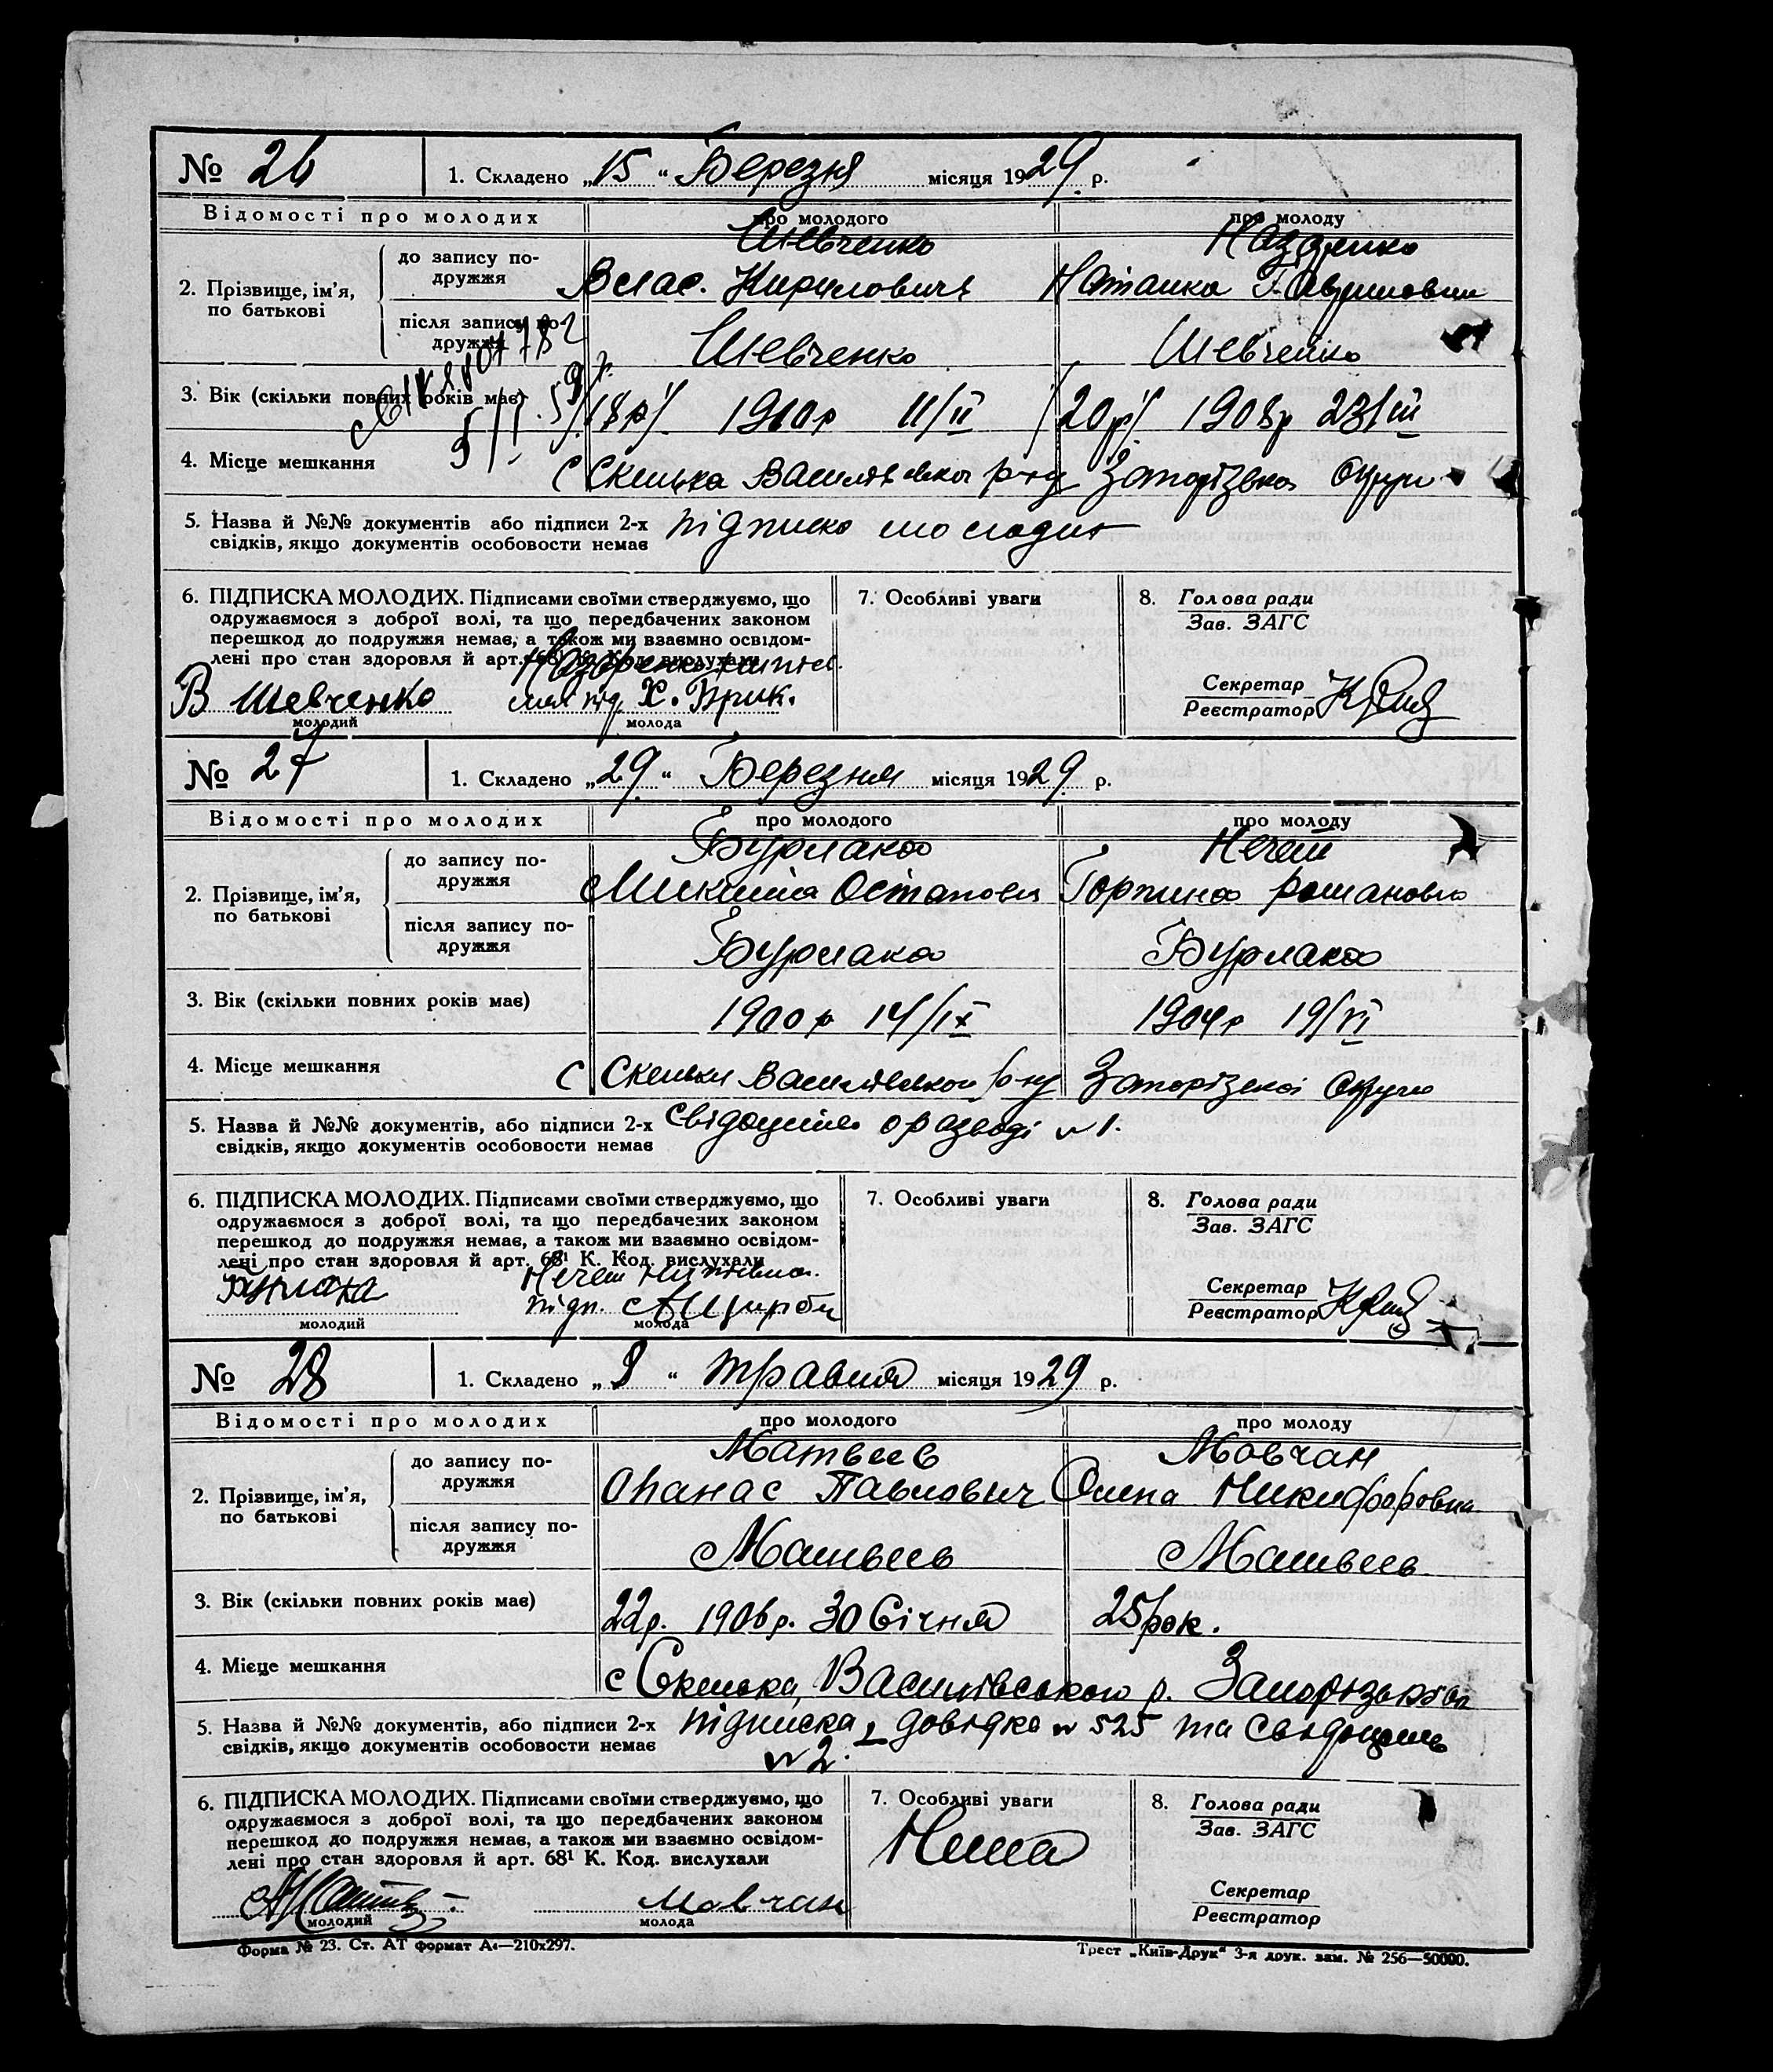 № 26 1. Складено „15“ Березня місяця 1929 р.
Відомості про молодих про молодого про молоду
Шевченко Назаренко
до запису по-
дружжя
Влас. Кирилович
2. Прізвище, ім’я,
по батькові
після запису по-
дружжя
Шевченко Шевченко
3. Вік (скільки повних років має) 18 р. 1910р 11/II 20 р. 1908р 23/III
4. Місце мешкання с Скелька Василівськог р-ну Запорізької Округи
5. Назва й №№ документів або підписи 2-х
свідків, якщо документів особовости немає
підписка молодих
6. ПІДПИСКА МОЛОДИХ. Підписами своїми стверджуємо, що
одружаємося з доброї волі, та що передбачених законом
перешкод до подружжя немає, а також ми взаємно освідом-
лені про стан здоровля й арт. 68¹ К. Код. вислухали
В Шевченко Х. Брик.
молодий молода
7. Особливі уваги
8. Голова ради
Зав. ЗАГС
Секретар
Реєстратор
№ 27 1. Складено „29“ Березня місяця 1929 р.
Відомості про молодих про молодого про молоду
Бурлака
до запису по-
дружжя
Микита Остапович Горпина романовна
2. Прізвище, ім’я,
по батькові
після запису по-
дружжя
Бурлака Бурлака
3. Вік (скільки повних років має) 1900р 14/IX 1904р
4. Місце мешкання с Скельки Василівської р-ну Запорізької Округи
5. Назва й №№ документів, або підписи 2-х
свідків, якщо документів особовости немає
свідоцтво о разводі № 1.
6. ПІДПИСКА МОЛОДИХ. Підписами своїми стверджуємо, що
одружаємося з доброї волі, та що передбачених законом
перешкод до подружжя немає, а також ми взаємно освідом-
лені про стан здоровля й арт. 68¹ К. Код. вислухали
Бурлака
підп.
молодий молода
7. Особливі уваги
8. Голова ради
Зав. ЗАГС
Секретар
Реєстратор
№ 28 1. Складено „8“ травня місяця 1929 р.
Відомості про молодих про молодого про молоду
Матвеев Мовчан
до запису по-
дружжя
Опанас Павлович Олена Никифоровна
2. Прізвище, ім’я,
по батькові
після запису по-
дружжя
Матвеев Матвеев
3. Вік (скільки повних років має) 22р. 1906р. 30 Січня 25 рок.
4. Місце мешкання с Скелька, Василівського р.
5. Назва й №№ документів, або підписи 2-х
свідків, якщо документів особовости немає
підписка, довідка № 525 та Свідоцтво
№ 2.
6. ПІДПИСКА МОЛОДИХ. Підписами своїми стверджуємо, що
одружаємося з доброї волі, та що передбачених законом
перешкод до подружжя немає, а також ми взаємно освідом-
лені про стан здоровля й арт. 68¹ К. Код. вислухали
Мовчан
молодий молода
7. Особливі уваги
Нема
8. Голова ради
Зав. ЗАГС
Секретар
Реєстратор
Форма № 23. Ст. АТ формат А4—210х297. Трест „Київ-Друк“ 3-я друк. зам. № 256—50000.